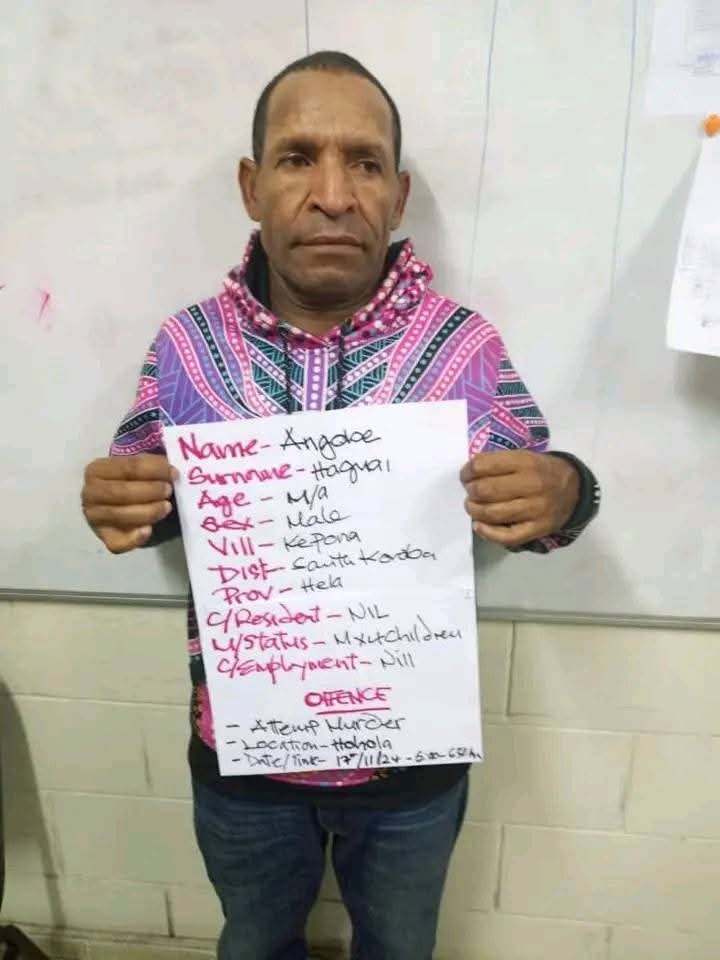 Name - Angobe
Surnme - Haguai
Age - M/a
Sex - Male
Vill - Kepona
Dist - South Koroba
Prov - Hela
C/Resident - NIL
M/Status - Mx4children
C/Employment - Nill
OFFENCE
- Attempt Murder
- Location - Hohola
- Date/Time - 17/11/24 -